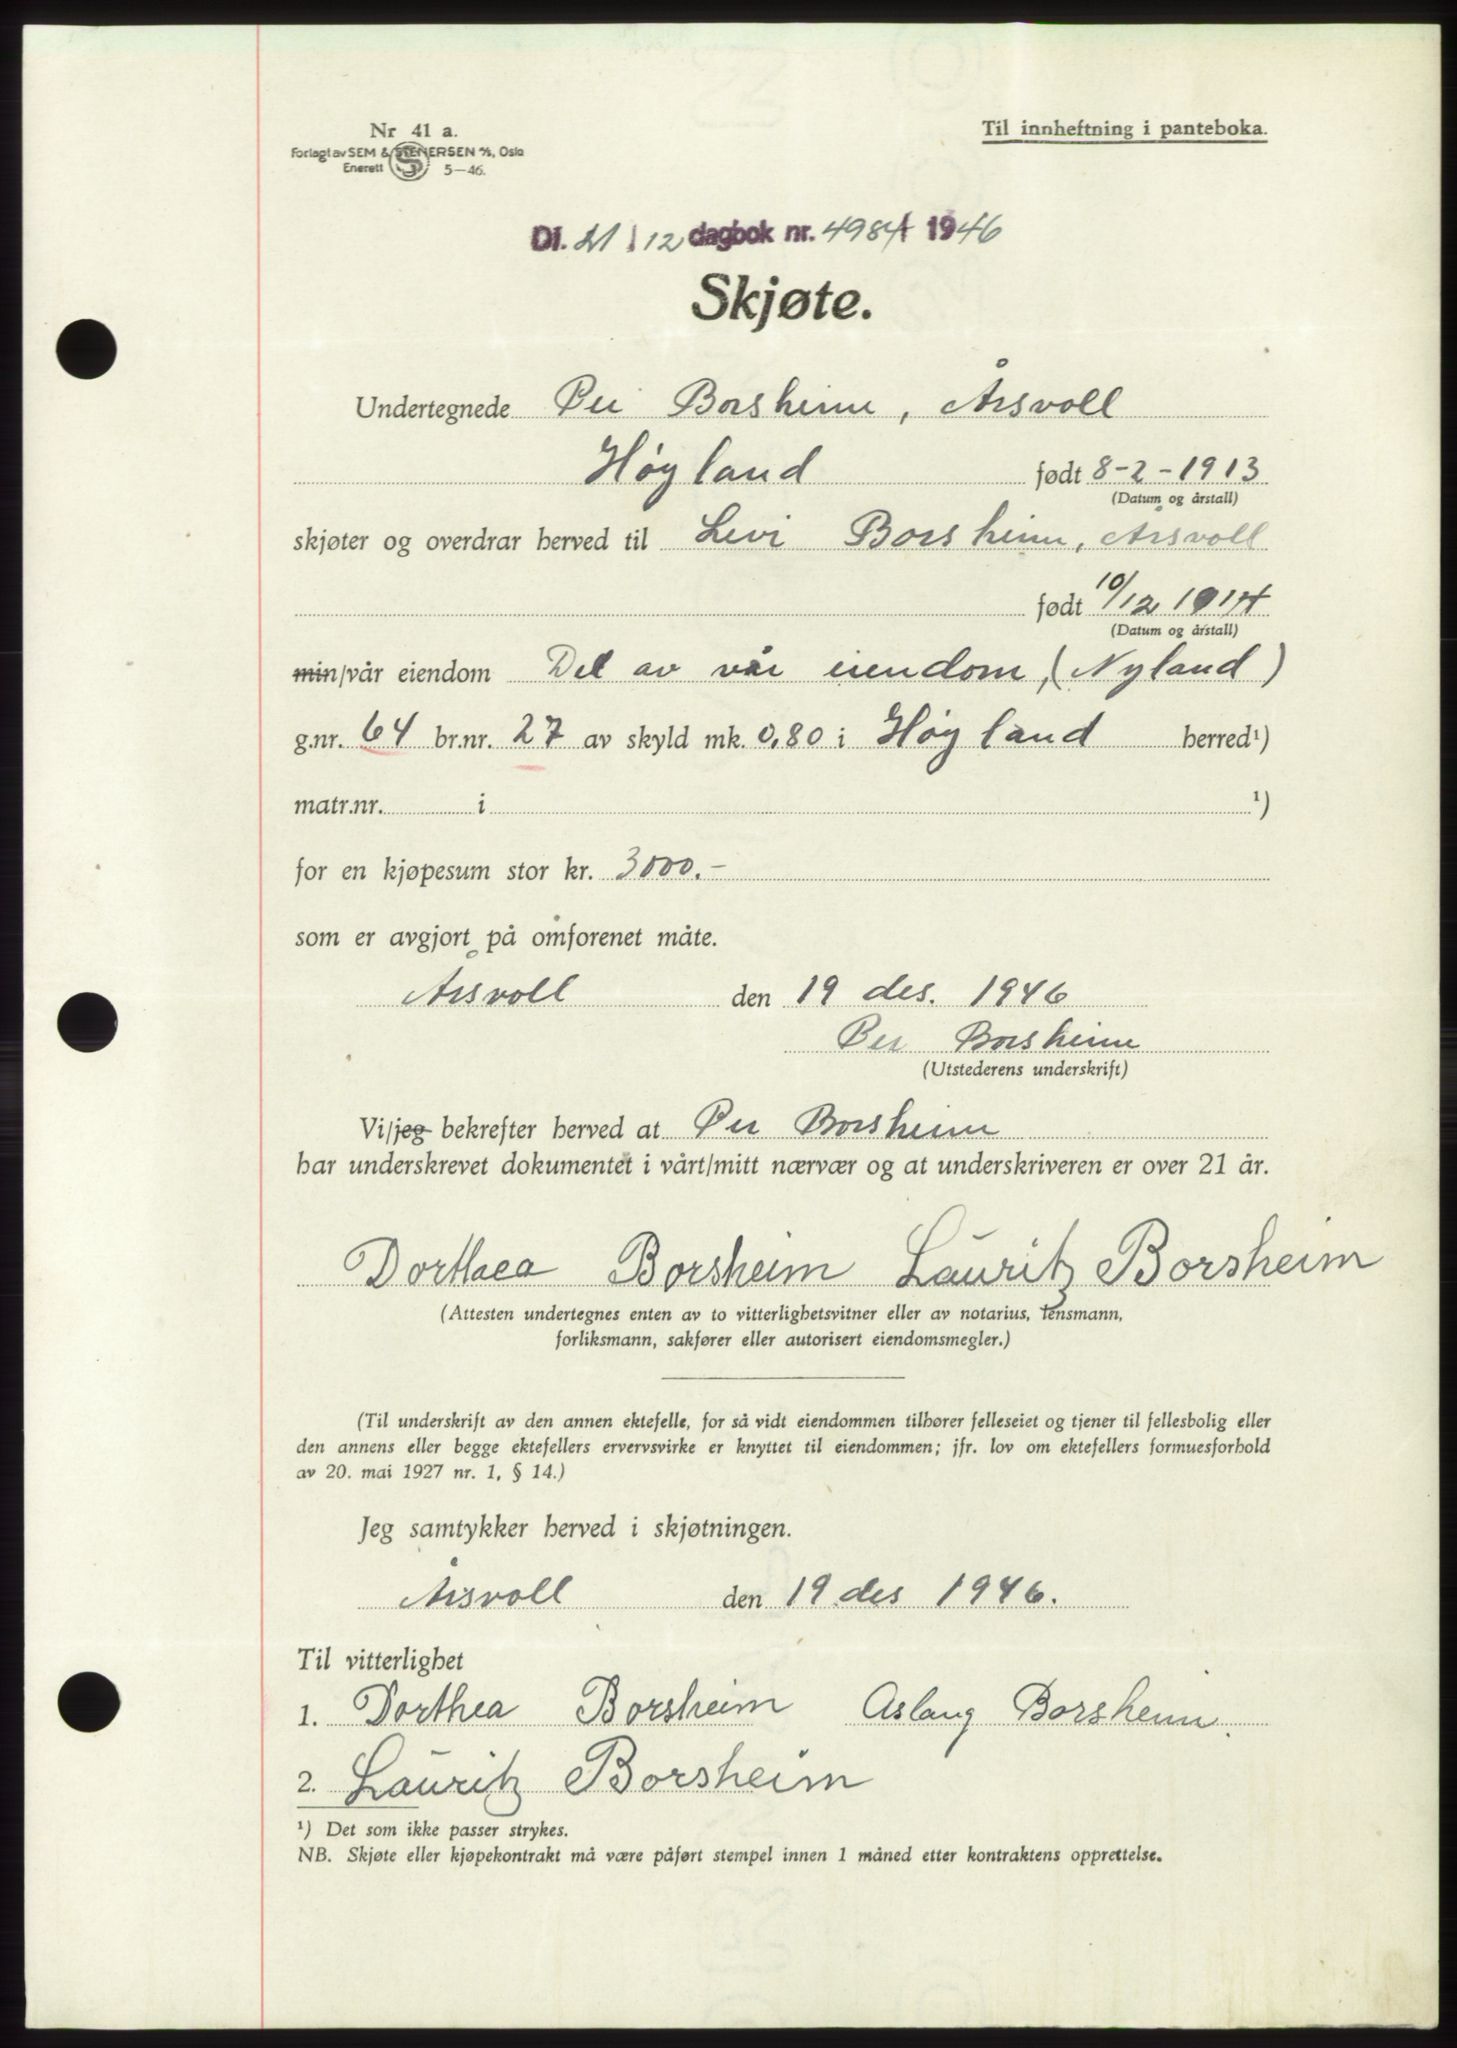 Nr 41 a.
Forlagt av SEM & STENERSEN A/S, Oslo
Enerett 5—46.
Til innheftning i panteboka.
Di. 21 / 12 dagbok nr. 4984 1946
Skjøte.
Undertegnede Per Borsheim, Årsvoll
Høyland født 8-2-1913
(Datum og årstall)
skjøter og overdrar herved til Levi Borsheim, Årsvoll
født 10/12 1914
(Datum og årstall)
min/vår eiendom Del av vår eiendom, (Nyland)
g.nr. 64 br.nr. 27 av skyld mk. 0,80 i Høyland herred¹)
matr.nr. i ¹)
for en kjøpesum stor kr. 3000.-
som er avgjort på omforenet måte.
Årsvoll den 19 des. 1946
Per Borsheim
(Utstederens underskrift)
Vi/jeg bekrefter herved at Per Borsheim
har underskrevet dokumentet i vårt/mitt nærvær og at underskriveren er over 21 år.
Dorthea Borsheim Lauritz Borsheim
(Attesten undertegnes enten av to vitterlighetsvitner eller av notarius, lensmann,
forliksmann, sakfører eller autorisert eiendomsmegler.)
(Til underskrift av den annen ektefelle, for så vidt eiendommen tilhører felleseiet og tjener til fellesbolig eller
den annens eller begge ektefellers ervervsvirke er knyttet til eiendommen; jfr. lov om ektefellers formuesforhold
av 20. mai 1927 nr. 1, § 14.)
Jeg samtykker herved i skjøtningen.
Årsvoll den 19 des 1946.
Til vitterlighet
1. Dorthea Borsheim Aslaug Borsheim.
2. Lauritz Borsheim
¹) Det som ikke passer strykes.
NB. Skjøte eller kjøpekontrakt må være påført stempel innen 1 måned etter kontraktens opprettelse.